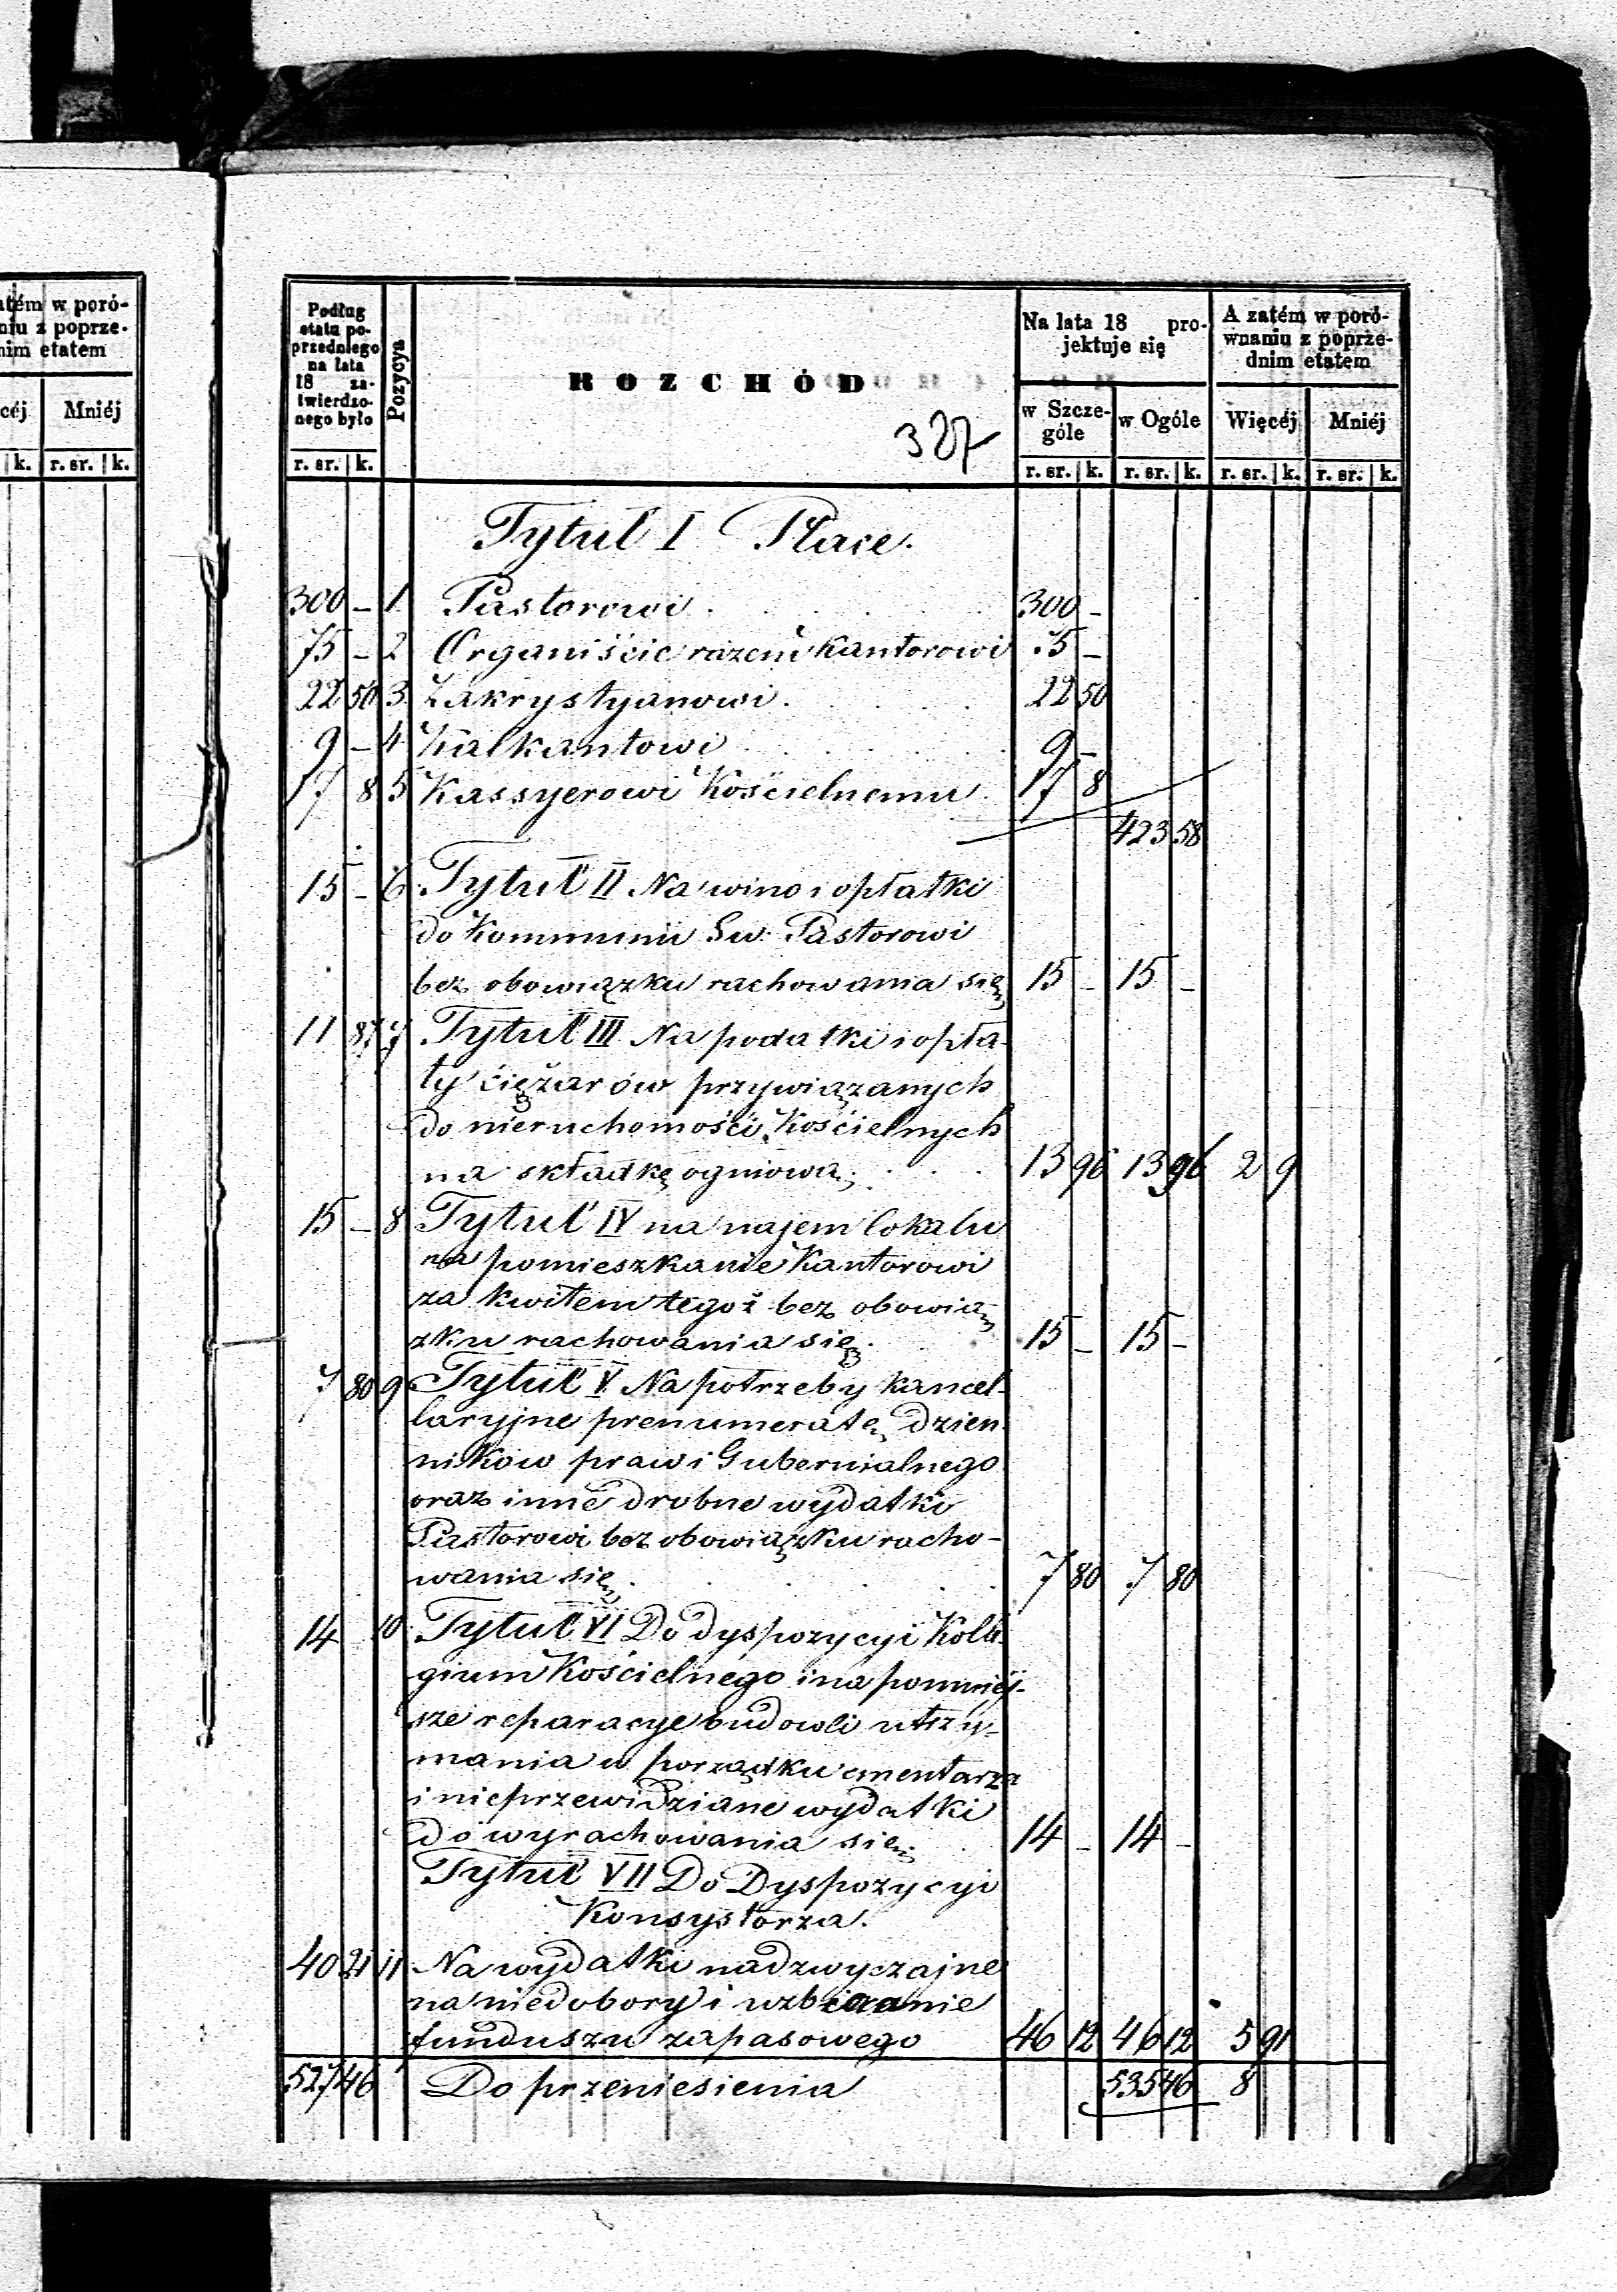 atém w poró-
niu z poprze-
nim etatem
céj Mniéj
k. r. sr. k.
Podług
etatu po-
przedniego
na lata
18 za-
twierdzo-
nego było
r. sr. k.
Pozycya
ROZCHÓD
327
Na lata 18 pro-
jektuje się
w Szcze-
góle
w Ogóle
r. sr. k. r. sr. k.
A zatém w poró-
wnaniu z poprze-
dnim etatem
Więcéj Mniéj
r. sr. k. r. sr. k.
Tytuł I Płace.
300 – 1 Pastorowi . 300 –
75 – 2 Organiście razem kantorowi 75 –
22 50 3 Zakrystyanowi . 22 50
9 – 4 Kalkantowi 9 –
17 8 5 Kassyerowi Kościelnemu 17 8
423 58
15 – 6 Tytuł II Na wino i opłatki
do Kommunii Sw. Pastorowi
bez obowiązku rachowania się 15 – 15 –
11 87 7 Tytuł III Na podatki i opła-
ty ciężarów przywiązanych
do nieruchomości Kościelnych
na składkę ogniową . 13 96 13 96 2 9
15 – 8 Tytuł IV na najem lokalu
na pomieszkanie Kantorowi
za kwitem tegoż bez obowią
zku rachowania się . 15 – 15 –
7 80 9 Tytuł V Na potrzeby kancel-
laryjne prenumeratę Dzien
ników praw i Gubernialnego
oraz inne drobne wydatki
Pastorowi bez obowiązku racho-
wania się . 7 80 7 80
14 10 Tytuł VI Do dyspozycyi Kolle-
gium Kościelnego i na pomniéj-
sze reparacye budowli utrzy-
mania w porządku cmentarza
i nieprzewidziane wydatki
do wyrachowania się . 14 – 14 –
Tytuł VII Do Dyspozycyi
Konsystorza.
40 21 11 Na wydatki nadzwyczajne
na niedobory i wzbieranie
funduszu zapasowego 46 12 46 12 5 91
527 46 Do przeniesienia 535 46 8